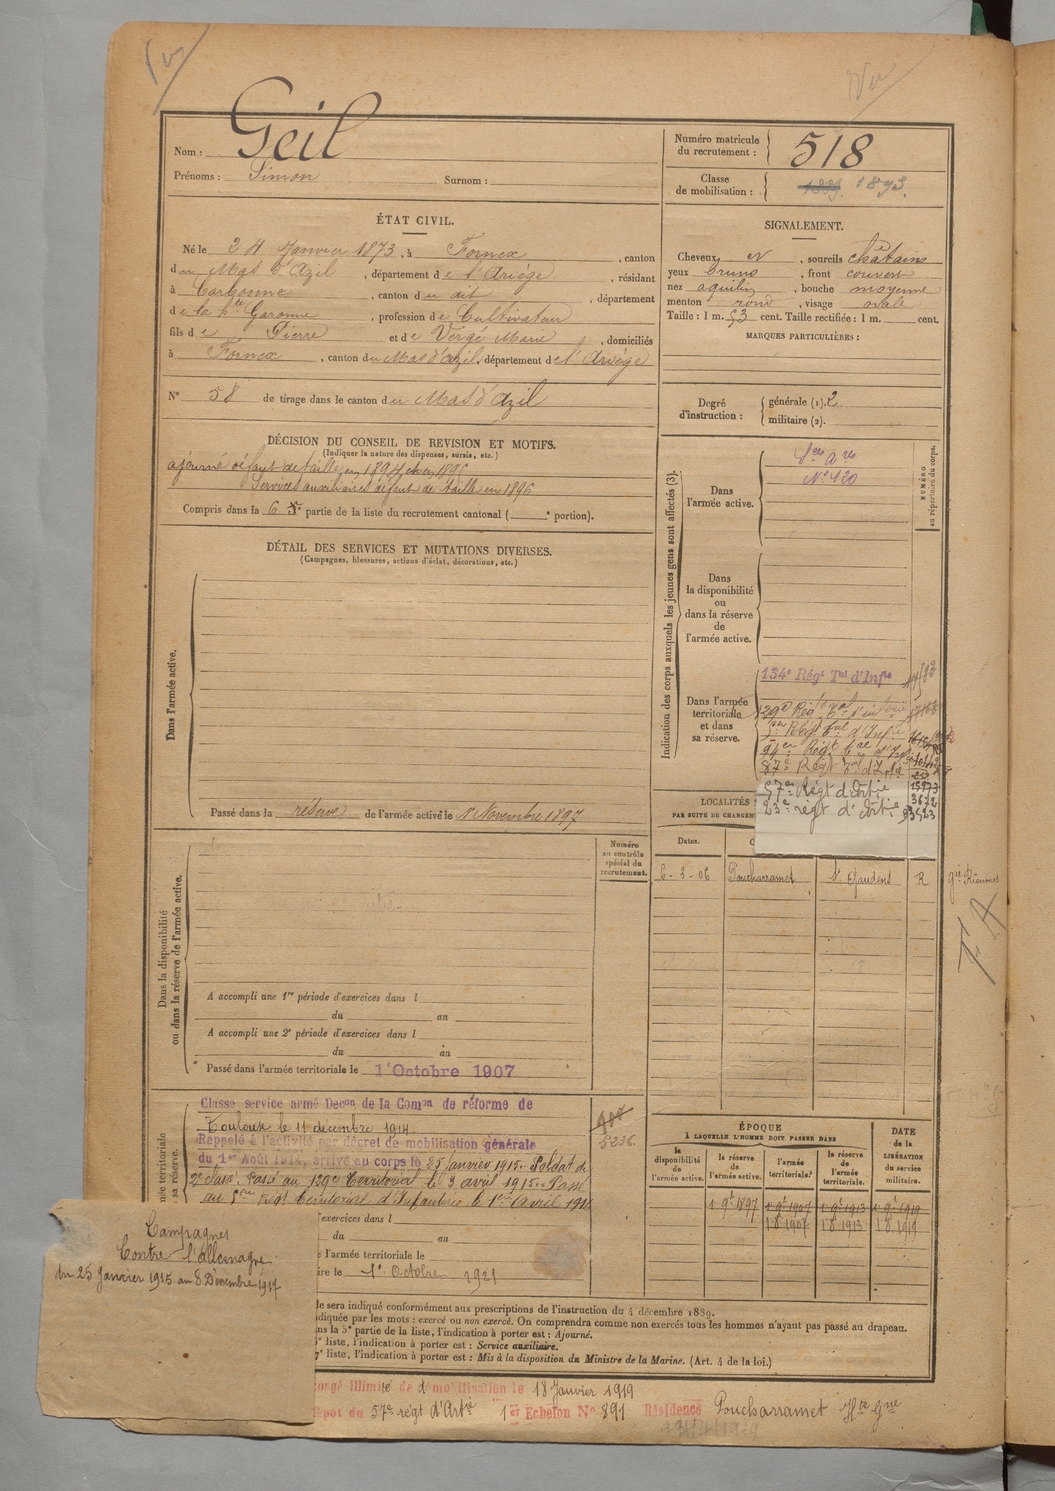 Nom : Geil
Prénoms : Simon Surnom :
Numéro matricule du recrutement : 518
Classe de mobilisation : 1889. 1893.
ÉTAT CIVIL.
Né le 24 Janvier 1873, à Fornex, canton
du Mas d'Azil, département de l'Ariège, résidant
à Carbonne, canton du dit, département
de la Hte Garonne, profession de Cultivateur
fils de Pierre et de Vergé Marie, domiciliés
à Fornex, canton du Mas d'azil, département de l'Ariège
N° 58 de tirage dans le canton du Mas d'Azil
SIGNALEMENT.
Cheveux N, sourcils chatains
yeux bruns, front couvert
nez aquilin, bouche moyenne
menton rond, visage ovale
Taille : 1 m. 53 cent. Taille rectifiée : 1 m. cent.
MARQUES PARTICULIÈRES :
Degré d'instruction : générale (1). 2
militaire (2).
DÉCISION DU CONSEIL DE REVISION ET MOTIFS.
(Indiquer la nature des dispenses, sursis, etc.)
ajourné défaut de taille en 1894 et en 1895
Services auxiliaires défaut de taille en 1896
Compris dans la 6e partie de la liste du recrutement cantonal ( e portion).
DÉTAIL DES SERVICES ET MUTATIONS DIVERSES.
(Campagnes, blessures, actions d'éclat, décorations, etc.)
Dans l'armée active.
Passé dans la réserve de l'armée active le 1r Novembre 1897
Indication des corps auxquels les jeunes gens sont affectés (3).
NUMÉRO au répertoire du corps.
Dans l'armée active.
N° 120
Dans la disponibilité ou dans la réserve de l'armée active.
Dans l'armée territoriale et dans sa réserve.
134e Régt Tal d'Infie
129e Régt tal d'infie
5me Régt tal d'Infie
94er Régt tal d'Infie
87e Régt tal d'Infie
57e Régt d'artie
23e régt d'artie
15973
3672
LOCALITÉS
PAR SUITE DE CHANGEM
Dates.
6-3-06 Poucharramet St Gaudens R
gie Rieumes
F. A
Dans la disponibilité ou dans la réserve de l'armée active.
Numéro au contrôle spécial du recrutement.
A accompli une 1re période d'exercices dans l
du au
A accompli une 2e période d'exercices dans l
du au
Passé dans l'armée territoriale le 1r Octobre 1907
Classé service armé Decon de la Comon de réforme de
Toulouse le 11 décembre 1914.
Rappelé à l'activité par décret de mobilisation générale
du 1er Août 1914, arrivé au corps le 25 Janvier 1915. Soldat de
2e classe. Passé au 129e Territorial le 3 avril 1915. Passé
au 5eme Régt Territorial d'Infanterie le 1er Avril 191
5236.
'exercices dans l
du au
e l'armée territoriale le
ire le 1er Octobre 1921
ÉPOQUE
À LAQUELLE L'HOMME DOIT PASSER DANS
la disponibilité de l'armée active.
la réserve de l'armée active.
l'armée territoriale.
la réserve de l'armée territoriale.
DATE de la LIBÉRATION du service militaire.
1 9t 1897 1 9t 1907 1 9t 1913 1 9t 1919
1 8 1907 1 8 1913 1 8 1919
Campagnes
Contre l'allemagne
du 25 Janvier 1915 au 8 Décembre 1917
le sera indiqué conformément aux prescriptions de l'instruction du 4 décembre 1889.
ndiquée par les mots : exercé ou non exercé. On comprendra comme non exercés tous les hommes n'ayant pas passé au drapeau.
ns la 5e partie de la liste, l'indication à porter est : Ajourné.
6e liste, l'indication à porter est : Service auxiliaire.
7e liste, l'indication à porter est : Mis à la disposition du Ministre de la Marine. (Art. 4 de la loi.)
congé illimité de démobilisation le 18 Janvier 1919
Dépot du 57e régt d'Artie 1er Echelon N° 891 Résidence Poucharramet Hte Gne